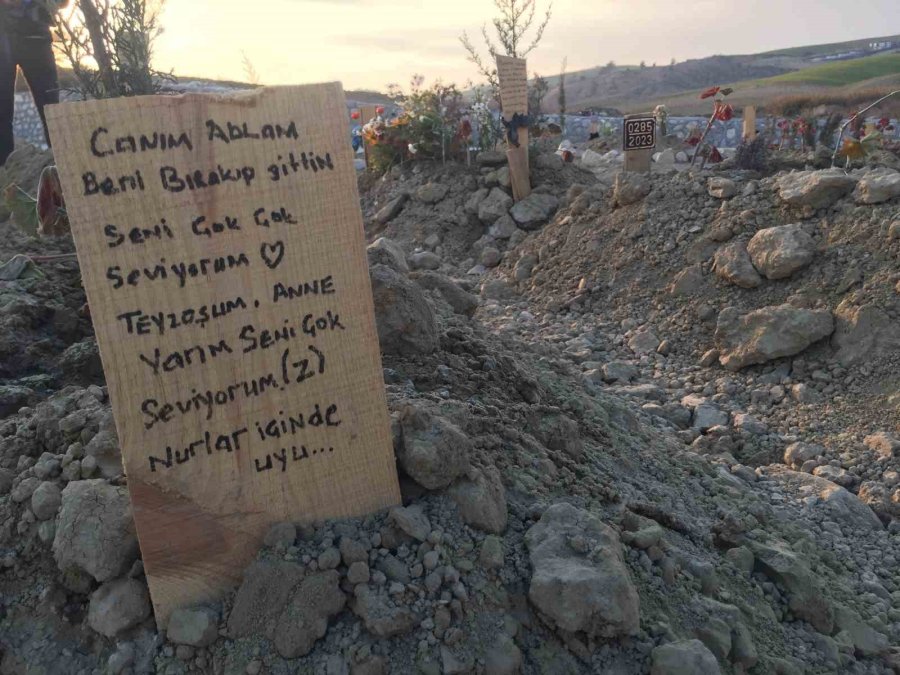 CANIM ABLAM
Beni Bırakıp gittin
Seni Çok Çok
Seviyorum ♡
TEYZOŞUM. ANNE
Yarım Seni Çok
Seviyorum (Z)
Nurlar içinde
uyu...
0285
2023